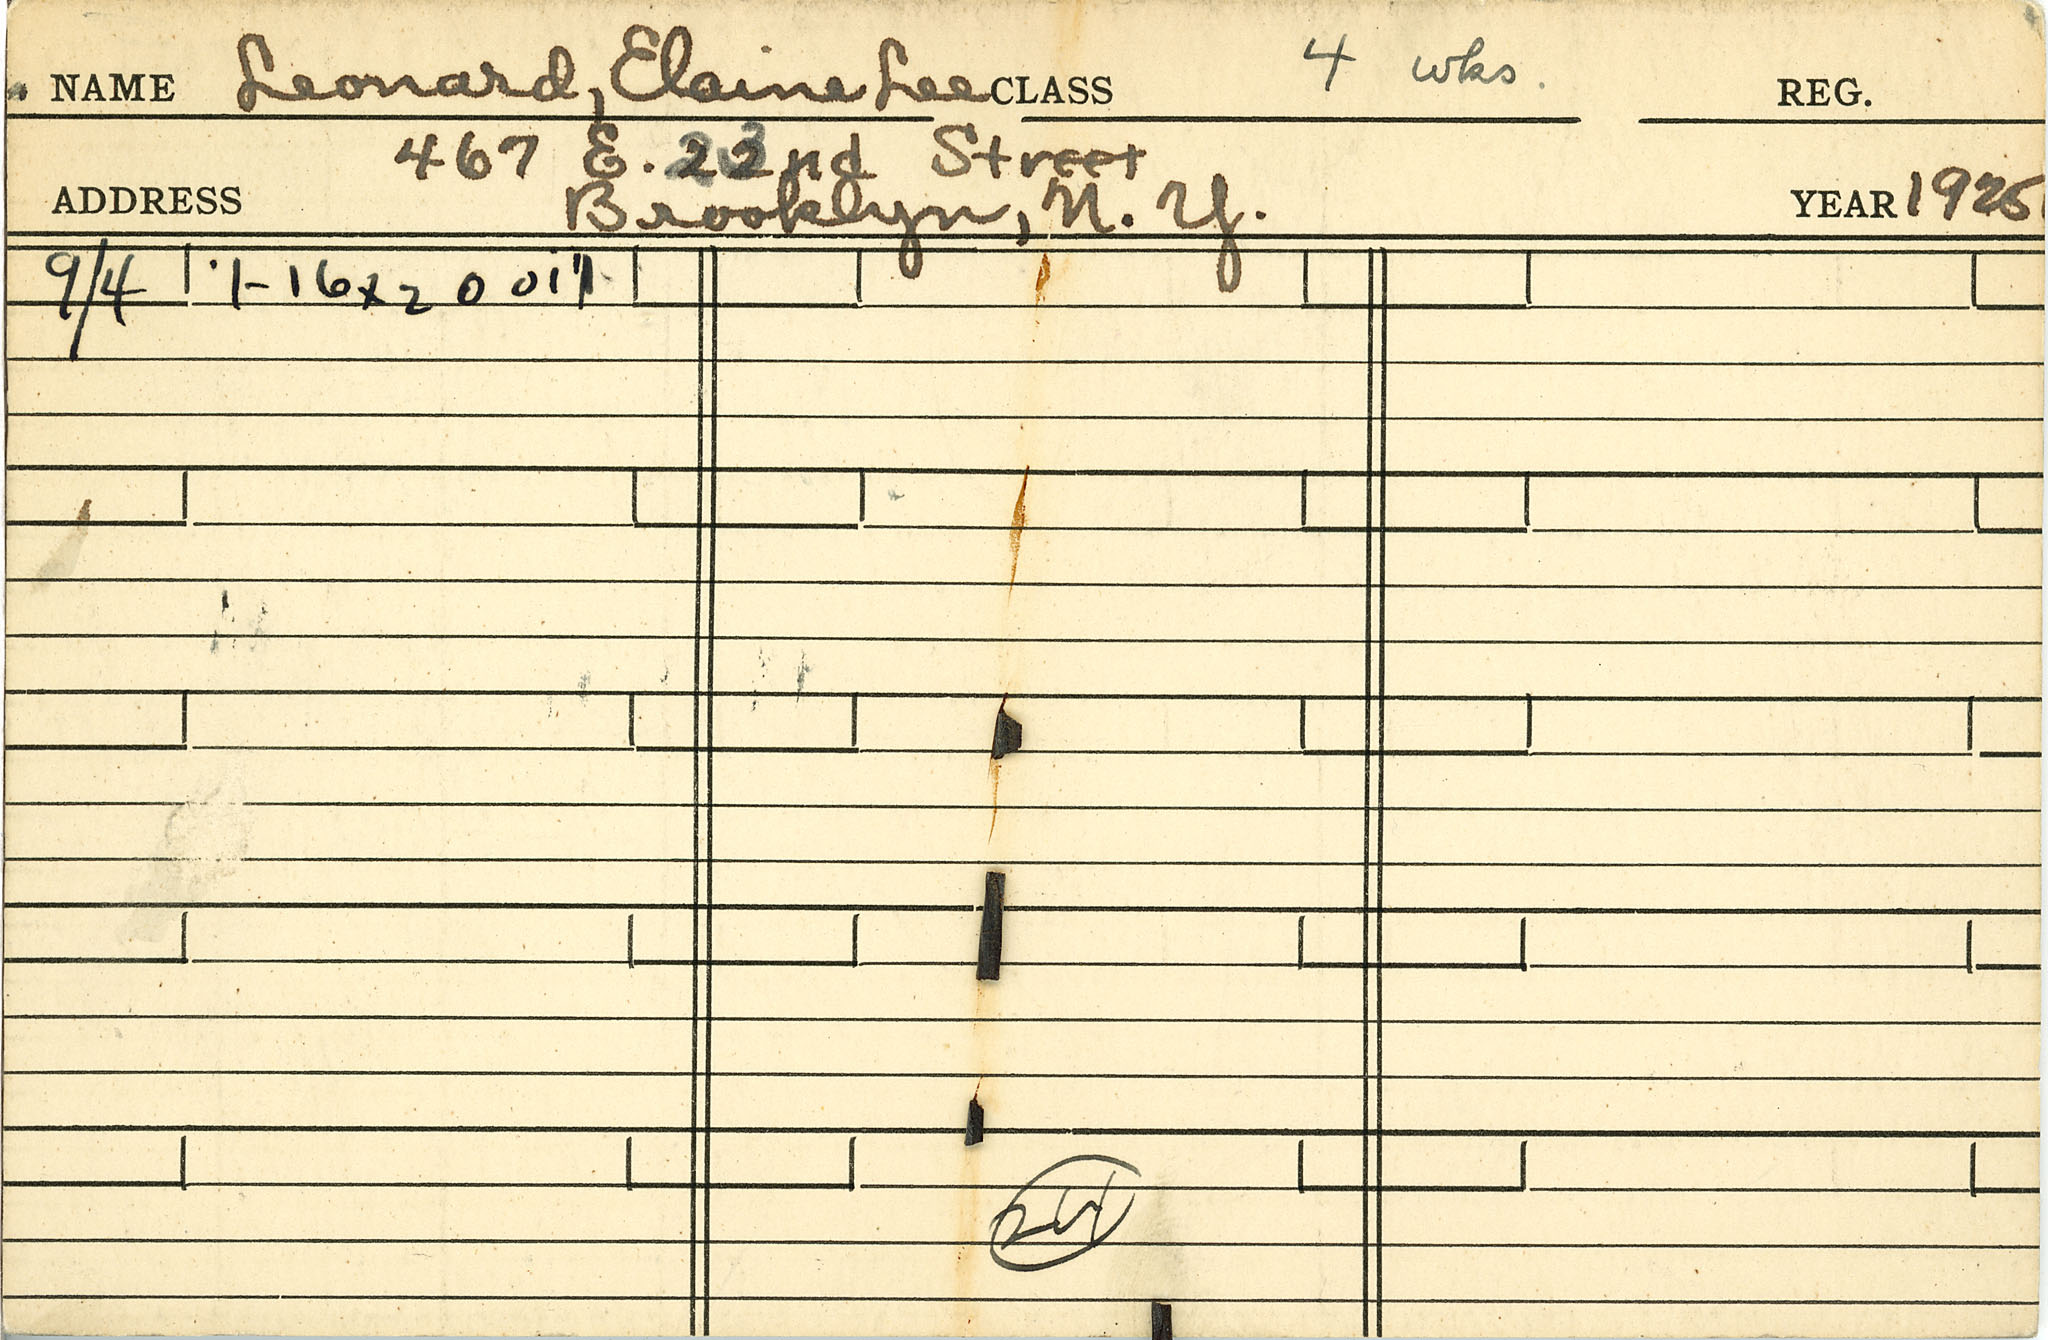 NAME Leonard, Elaine Lee CLASS 4 wks. REG.
467 E. 22nd Street
ADDRESS Brooklyn, N. Y. YEAR 1926
9/4 1-16x20 oil